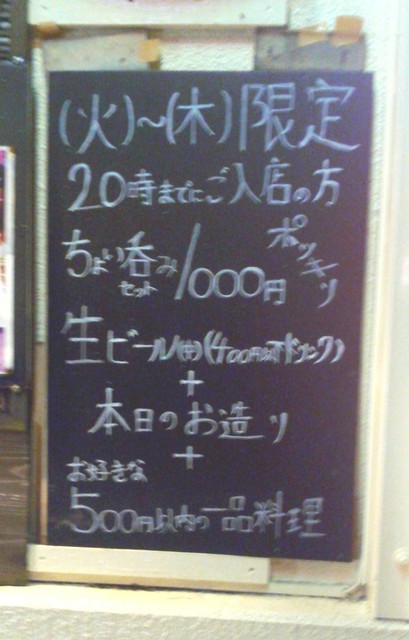 (火)~(木)限定
20時までにご入店の方
ちょい呑みセット 1000円ポッキリ
生ビール(中)(400円以下ドリンク)
+
本日のお造り
+
お好きな
500円以内の一品料理